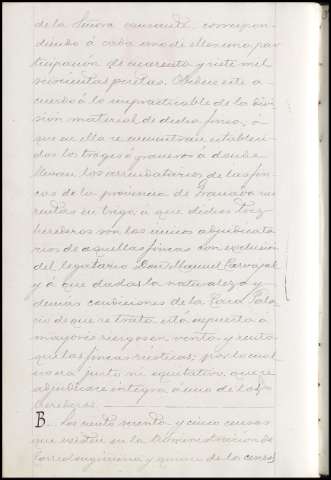 de la Señora causante, correspon-
diendo á cada uno de ellos una par-
ticipación de cuarenta y siete mil
quinientas pesetas. Obedece este a-
cuerdo á lo impracticable de la divi-
sión material de dicha finca, á
que en ella se encuentran estableci-
dos los trages ó graneros á donde
llevan los arrendatarios de las fin-
cas de la provincia de Granada sus
rentas en trigo, á que dichos tres
herederos son los únicos adjudicata-
rios de aquellas fincas con exclusión
del legatario Don Manuel Carvajal
y á que dadas la naturaleza y
demás condiciones de la Casa Pala-
cio de que se trata está expuesta á
mayores riesgos en venta y renta
que las fincas rústicas; por lo cual
no era justo ni equitativo que se
adjudicase íntegra á uno de los
herederos.
B. Los ciento noventa y cinco censos
que existen en la Administración de
Torredonjimeno y quince de los censos